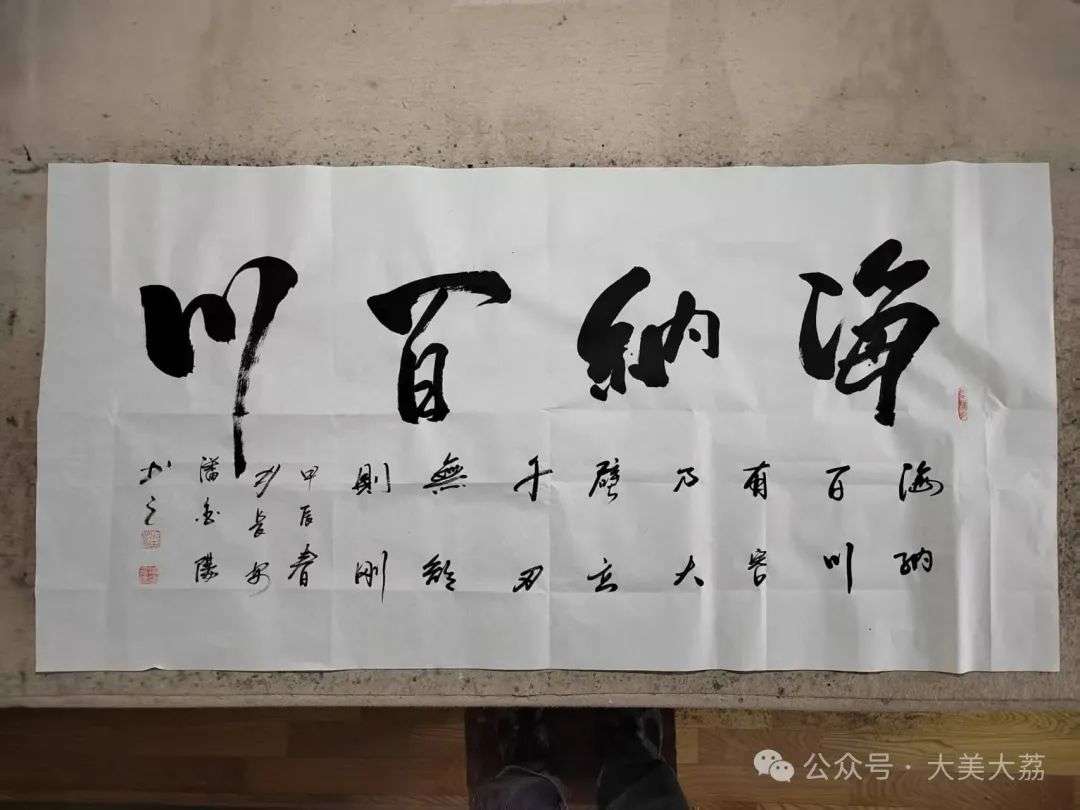 海納百川
海納
百川
有容
乃大
壁立
千刃
無欲
則剛
甲辰春
於長安
潘
书之
公众号·大美大荔